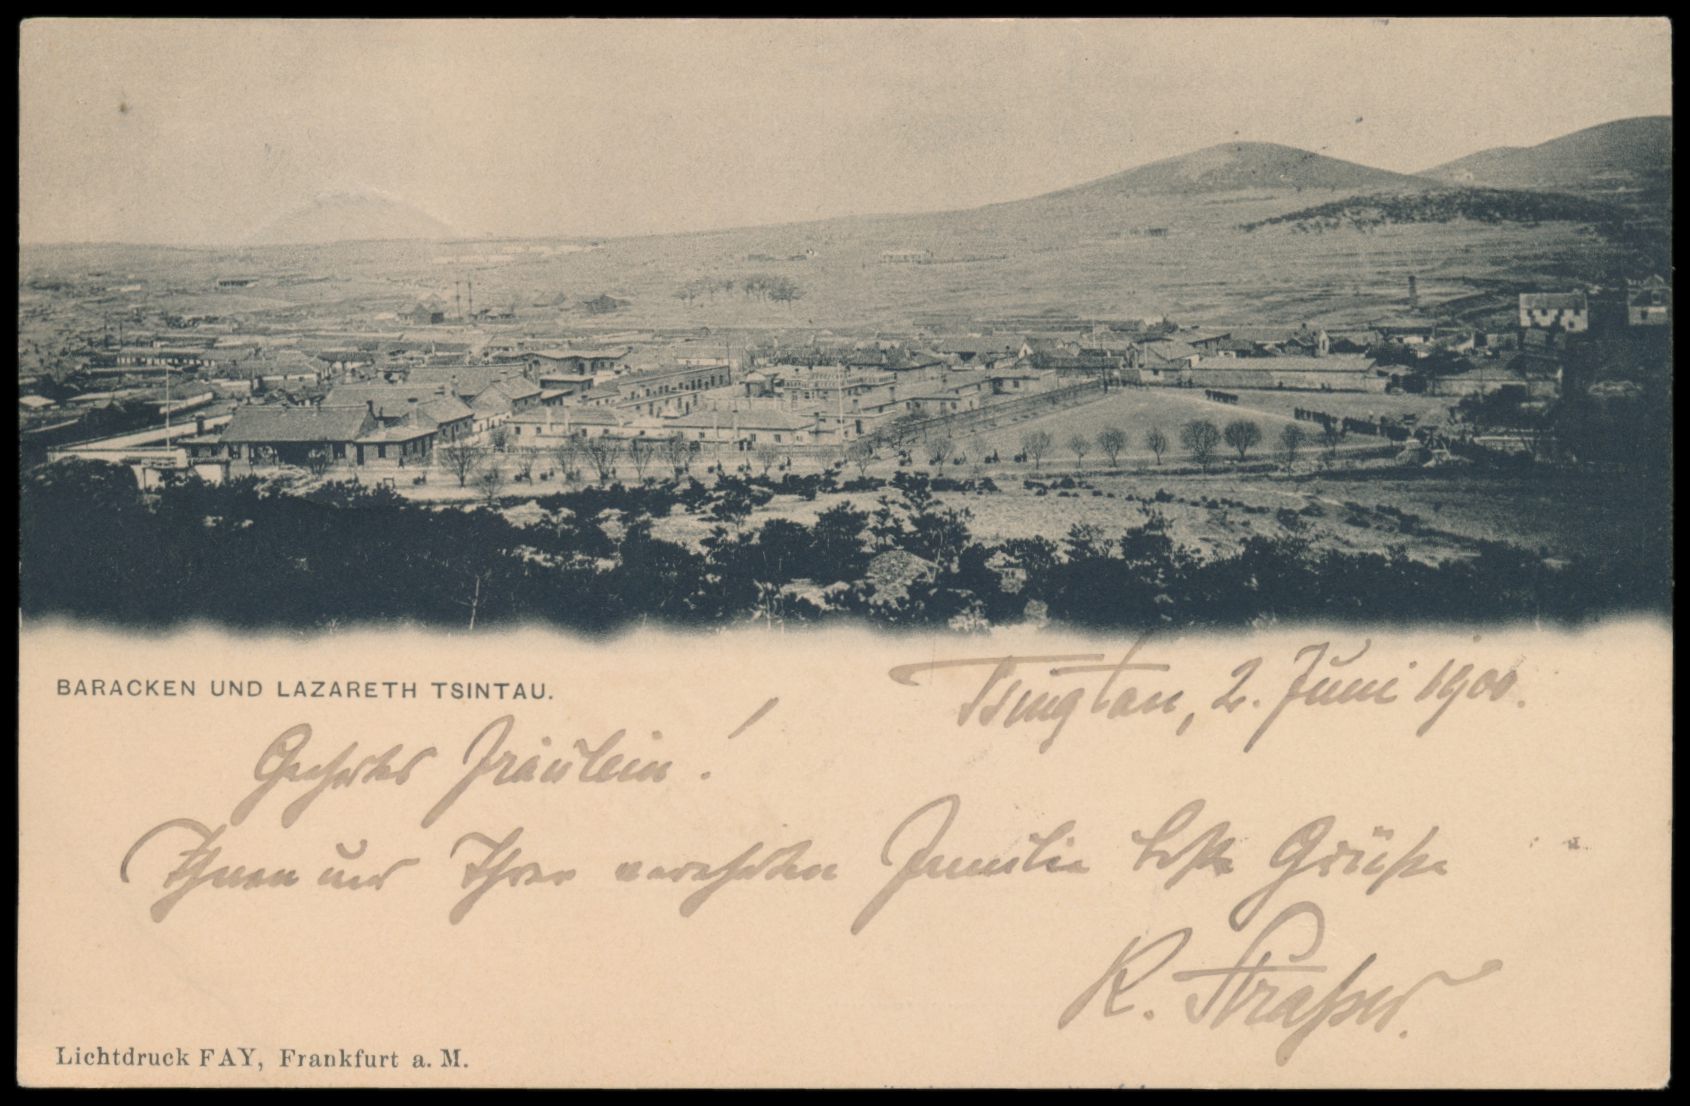 BARACKEN UND LAZARETH TSINTAU.
Tsingtau, 2. Juni 1900.
Geehrtes Fräulein!
Ihnen und Ihrer verehrten Familie beste Grüße
K. Straßer.
Lichtdruck FAY, Frankfurt a. M.